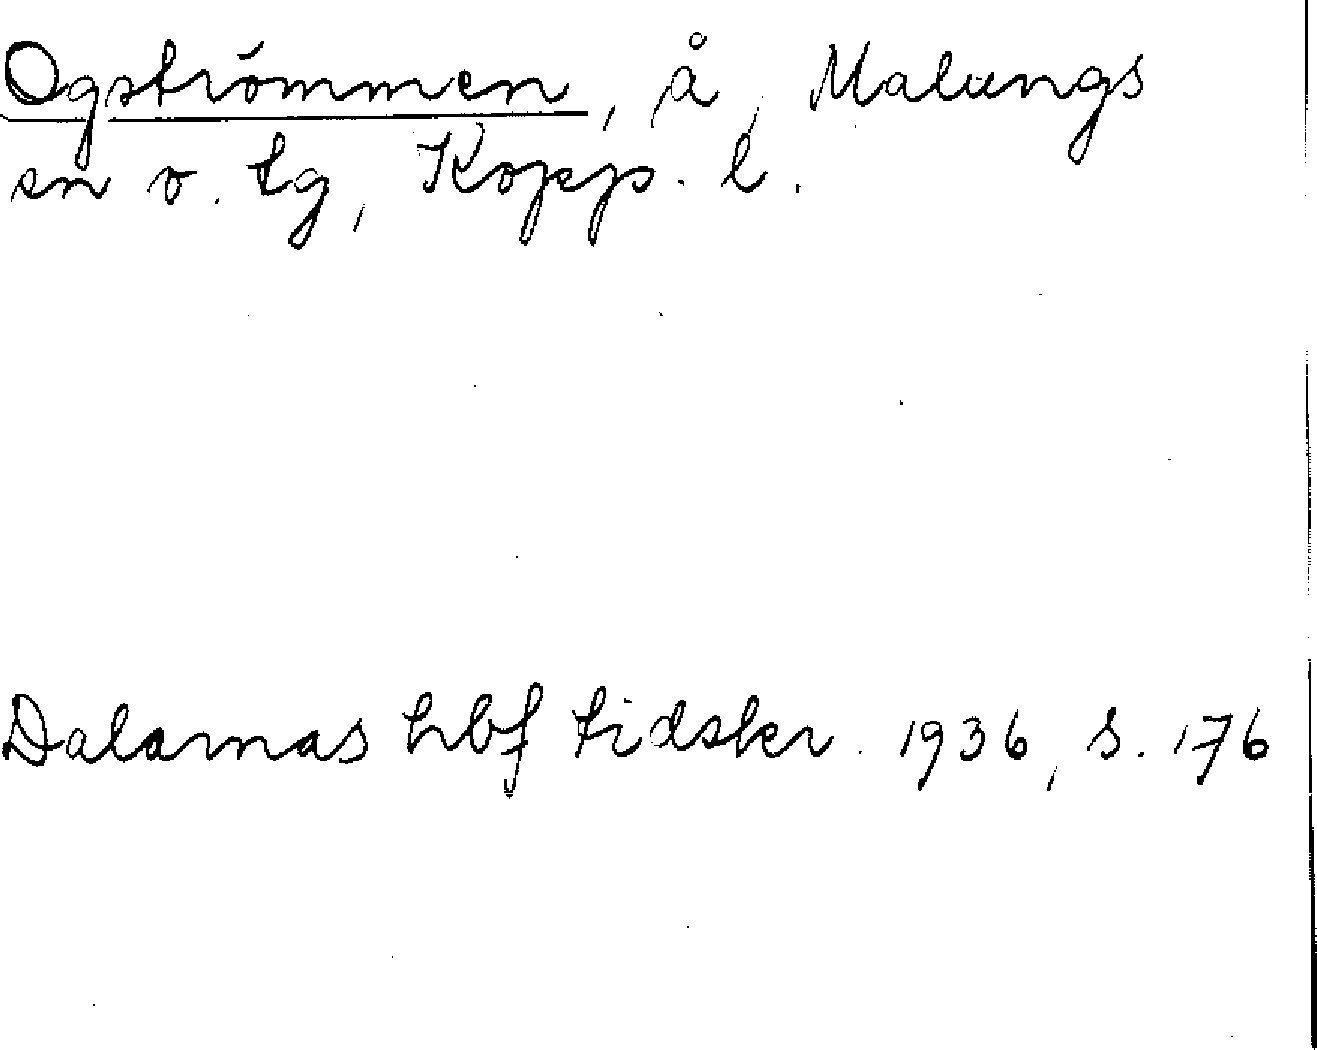 Ogströmmen, å, Malungs
sn o. tg, Kopp. l.
Dalarnas hbf tidskr. 1936, s. 176